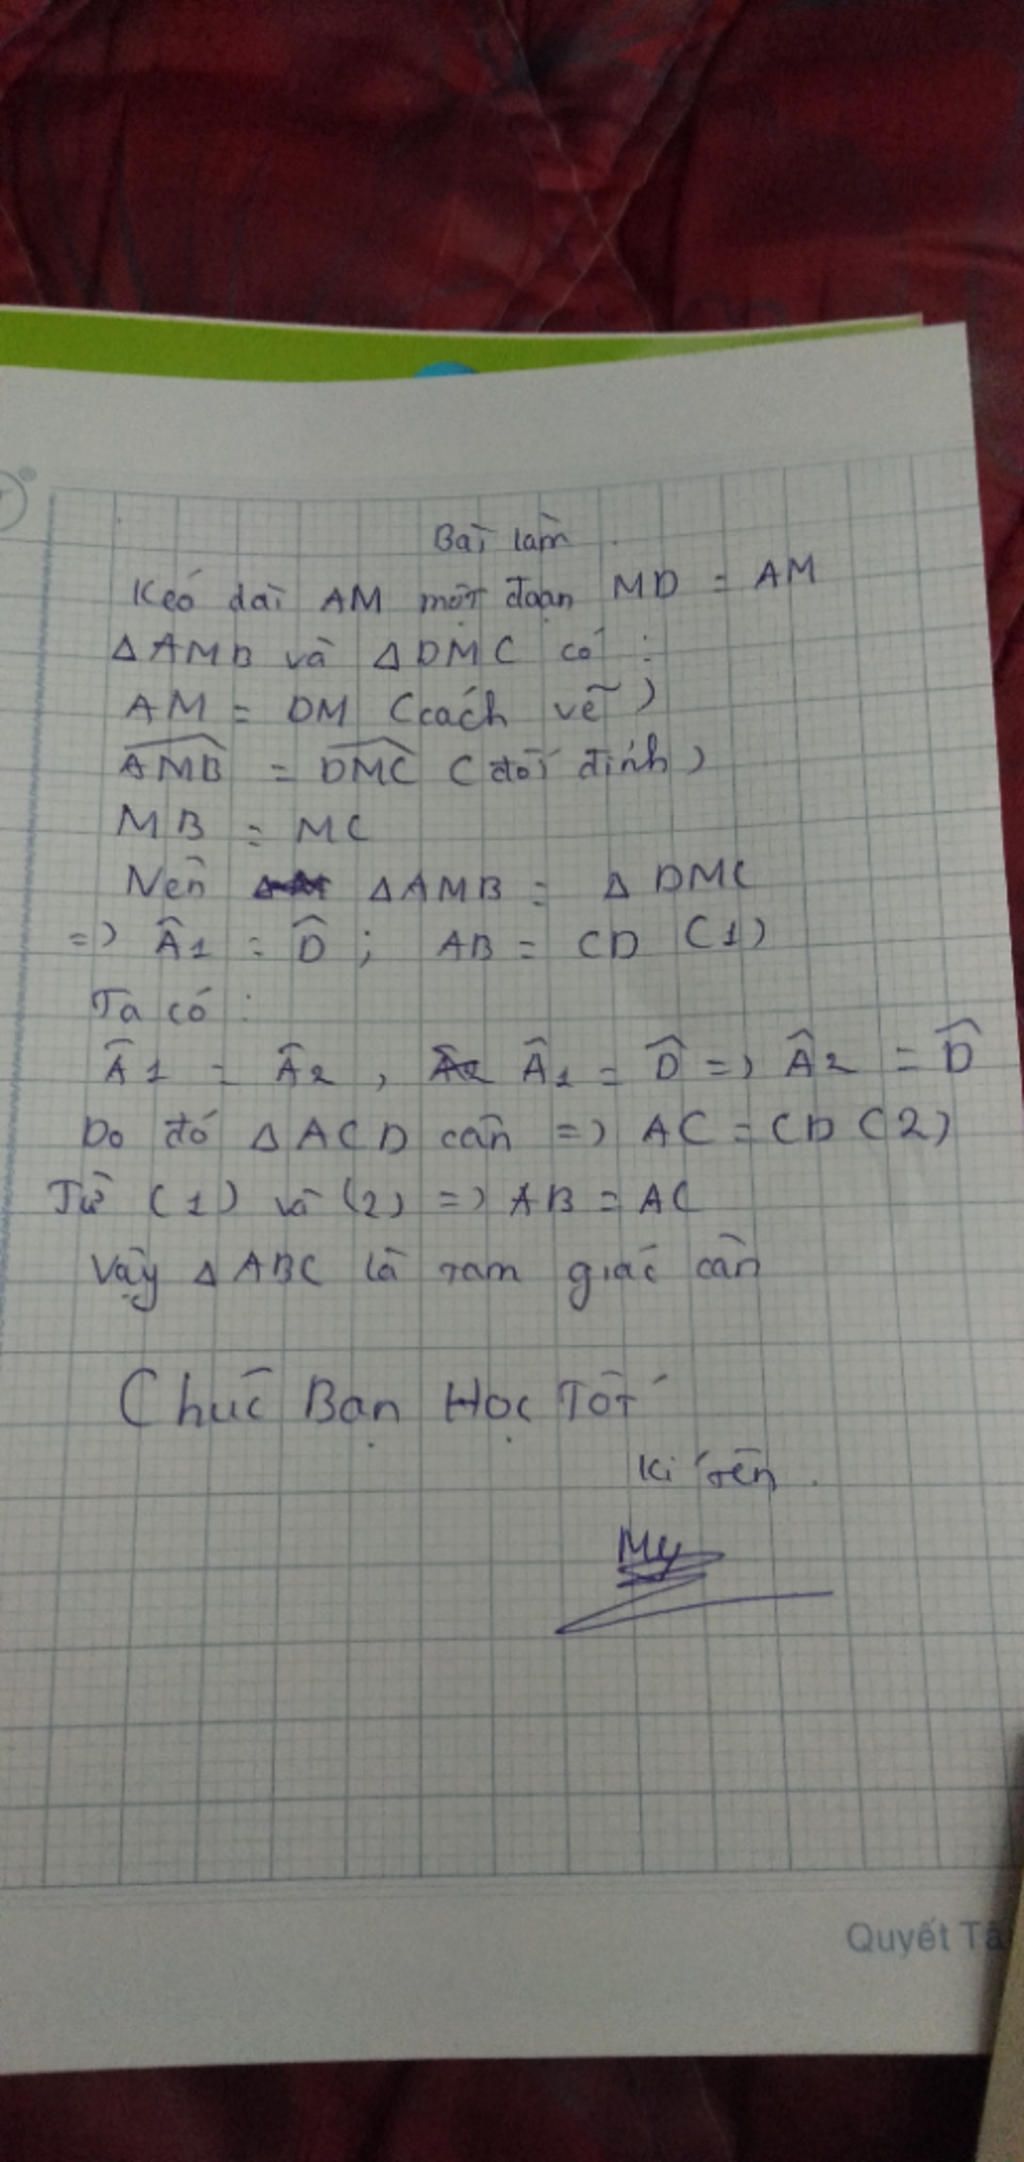 Bài làm
Kéo dài AM một đoạn MD = AM
Δ AMB và Δ DMC có :
AM = DM (cách vẽ)
\widehat{AMB} = \widehat{DMC} (đối đỉnh)
MB = MC
Nên Δ AMB = Δ DMC
=> Â1 = D̂ ; AB = CD (1)
Ta có :
Â1 = Â2 , Â1 = D̂ => Â2 = D̂
Do đó Δ ACD cân => AC = CD (2)
Từ (1) và (2) => AB = AC
Vậy Δ ABC là tam giác cân
Chúc Bạn Học Tốt
Kí tên
My
Quyết